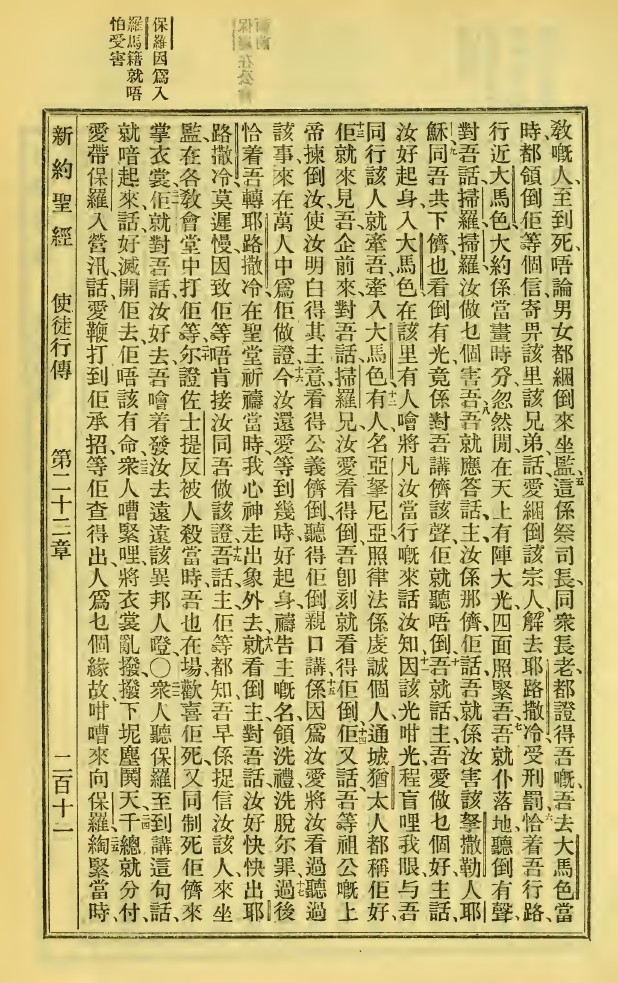 保羅因爲入
羅馬籍就唔
怕受害
教嘅人、至到死、唔論男女都綑倒來坐監、五這係祭司長、同衆長老都證得吾嘅、吾去大馬色當
時都領倒佢等個信寄畀該里該兄弟、話愛綑倒該宗人解去耶路撒冷受刑罰、六恰着吾行路、
行近大馬色、大約係當晝時分、忽然閒在天上有陣大光、四面照緊吾、七吾就仆落地、聽倒有聲、
對吾話、掃羅掃羅、汝做乜個害吾、八吾就應答話、主汝係那儕、佢話、吾就係汝害該拏撒勒人耶
穌、九同吾共下儕、也看倒有光、竟係對吾講儕該聲、佢就聽唔倒、十吾就話、主、吾愛做乜個好、主話、
汝好起身入大馬色、在該里有人噲將凡汝當行嘅來話汝知、十一因該光咁光程盲哩我眼、与吾
同行該人就牽吾、牽入大馬色、十二有人名亞拏尼亞、照律法係虔誠個人、通城猶太人都稱佢好、
十三佢就來見吾、企前來對吾話、掃羅兄、汝愛看得倒、吾卽刻就看得佢倒、十四佢又話、吾等祖公嘅上
帝揀倒汝、使汝明白得其主意、看得公義儕倒、聽得佢倒親口講、十五係因爲汝愛將汝看過聽過
該事、來在萬人中爲佢做證、十六今汝還愛等到幾時、好起身、禱告主嘅名、領洗禮、洗脫尔罪過、十七後
恰着吾轉耶路撒冷、在聖堂祈禱當時、我心神走出象外去、十八就看倒主對吾話、汝好快快出耶
路撒冷、莫遲慢、因致佢等唔肯接汝同吾做該證、十九吾話、主、佢等都知吾早係捉信汝該人來坐
監、在各教會堂中打佢等、二十尔證佐士提反被人殺當時、吾也在場、歡喜佢死、又同制死佢儕來
掌衣裳、二一佢就對吾話、汝好去、吾噲着發汝去遠遠該異邦人𠹌、○二二衆人聽保羅至到講這句話、
就喑起來話、好滅開佢去、佢唔該有命、二三衆人嘈緊哩、將衣裳亂撥、撥下坭塵閧天、二四千總就分付、
愛帶保羅入營汛、話愛鞭打到佢承招、等佢查得出人爲乜個緣故咁嘈來向保羅、二五綯緊當時、
新約聖經　使徒行傳　第二十二章　二百十一